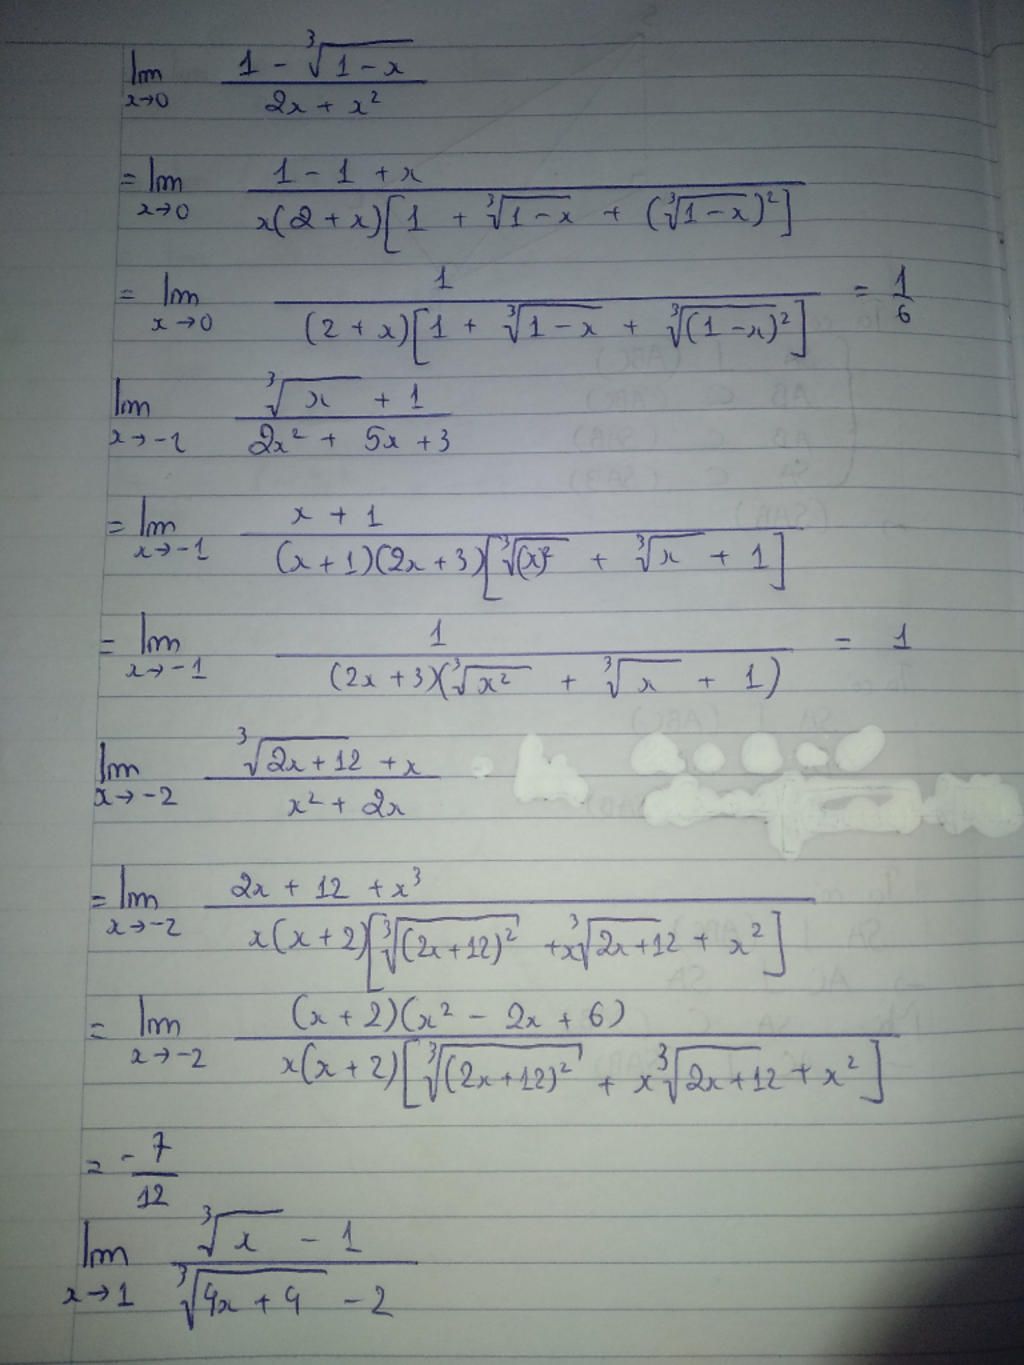 lim x→0 (1 - ∛(1-x)) / (2x + x²)
= lim x→0 (1 - 1 + x) / (x(2+x)[1 + ∛(1-x) + (∛(1-x))²])
= lim x→0 1 / ((2+x)[1 + ∛(1-x) + ∛((1-x)²)]) = 1/6
lim x→-1 (∛x + 1) / (2x² + 5x + 3)
= lim x→-1 (x + 1) / ((x+1)(2x+3)[∛(x)² + ∛x + 1])
= lim x→-1 1 / ((2x+3)(∛x² + ∛x + 1)) = 1
lim x→-2 (∛(2x+12) + x) / (x² + 2x)
= lim x→-2 (2x + 12 + x³) / (x(x+2)[∛((2x+12)²) + x∛(2x+12) + x²])
= lim x→-2 ((x+2)(x² - 2x + 6)) / (x(x+2)[∛((2x+12)²) + x∛(2x+12) + x²])
= -7/12
lim x→1 (∛x - 1) / (∛(4x+4) - 2)